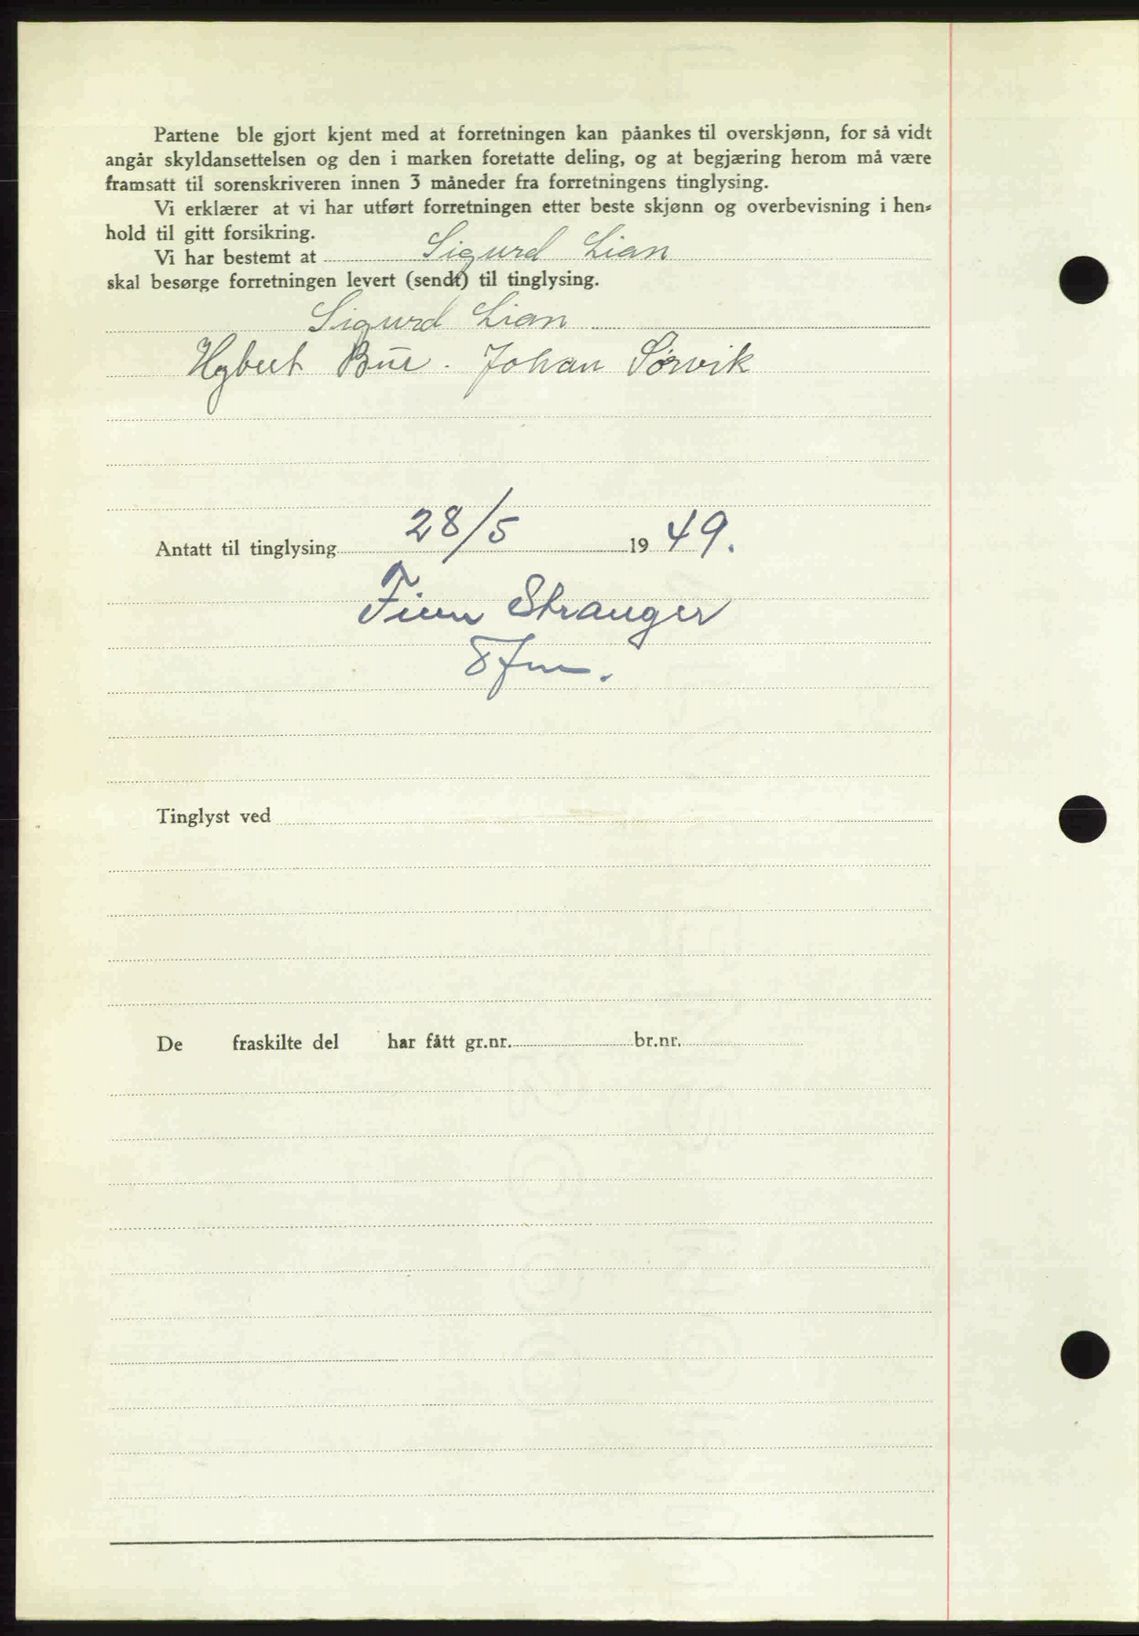 Partene ble gjort kjent med at forretningen kan påankes til overskjønn, for så vidt
angår skyldansettelsen og den i marken foretatte deling, og at begjæring herom må være
framsatt til sorenskriveren innen 3 måneder fra forretningens tinglysing.
Vi erklærer at vi har utført forretningen etter beste skjønn og overbevisning i hen-
hold til gitt forsikring.
Vi har bestemt at Sigurd Lian
skal besørge forretningen levert (sendt) til tinglysing.
Sigurd Lian
Johan Sørvik
Antatt til tinglysing 28/5 1949.
Finn Stranger
Tinglyst ved
De fraskilte del har fått gr.nr. br.nr.